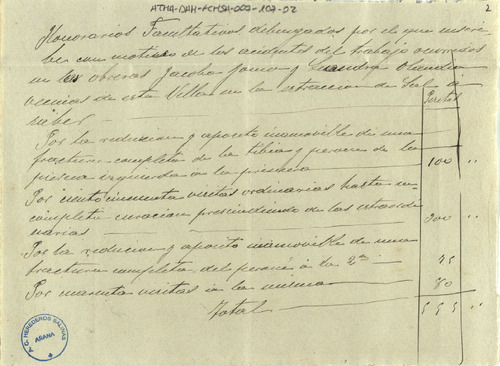 ATHA-DAH-FCMSA-007-107-02
2
Honorarios Facultativos debengados por el que suscri
be con motivo de los accidentes del trabajo ocurridos
en las obreras Jacoba y Leandra
vecinas de esta Villa en la estraccion de Sal
Pesetas
Por la reducion y aposito inamovible de una
fractura completa de la tibia y perone de la
pierna izquierda a la primera 100 "
Por ciento cincuenta visitas ordinarias hasta su
completa curacion prescindiendo de las estraordi
narias 300 "
Por la reducion y aposito inamovible de una
fractura completa del peroné á la 2ª 75
Por cuarenta visitas á la misma 80
Total 555 "
P.C. HEREDEROS SALINAS
AÑANA